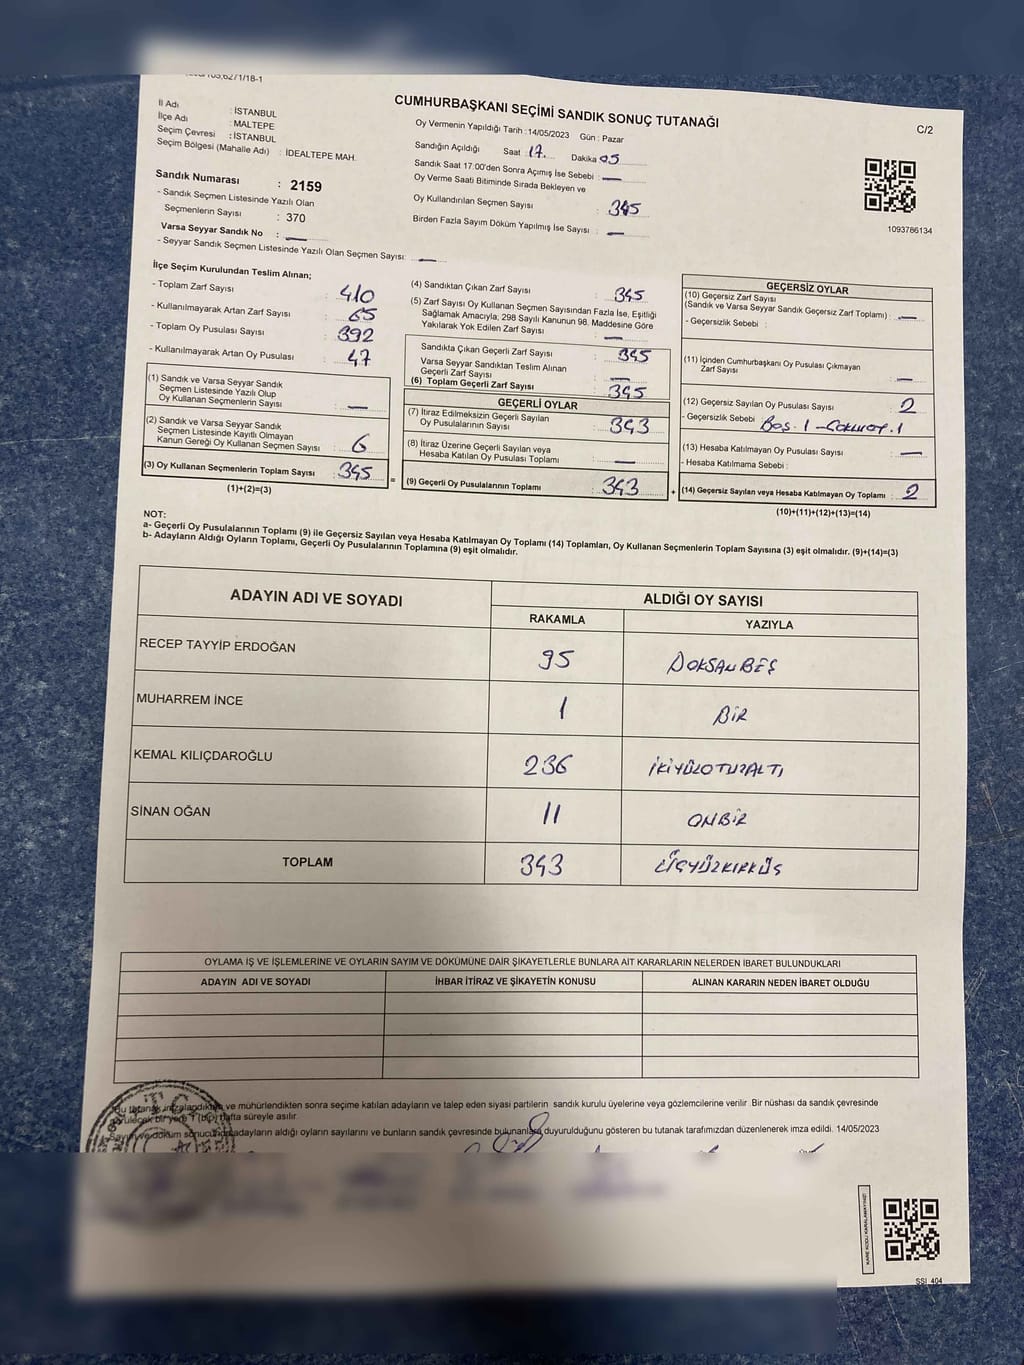 CUMHURBAŞKANI SEÇİMİ SANDIK SONUÇ TUTANAĞI
C/2
İl Adı : İSTANBUL
İlçe Adı : MALTEPE
Seçim Çevresi : İSTANBUL
Seçim Bölgesi (Mahalle Adı) : İDEALTEPE MAH.
Sandık Numarası : 2159
- Sandık Seçmen Listesinde Yazılı Olan
Seçmenlerin Sayısı : 370
Varsa Seyyar Sandık No : —
- Seyyar Sandık Seçmen Listesinde Yazılı Olan Seçmen Sayısı: —
Oy Vermenin Yapıldığı Tarih :14/05/2023 Gün : Pazar
Sandığın Açıldığı Saat 17 Dakika 05
Sandık Saat 17:00'den Sonra Açımış İse Sebebi : —
Oy Verme Saati Bitiminde Sırada Bekleyen ve
Oy Kullandırılan Seçmen Sayısı : 345
Birden Fazla Sayım Döküm Yapılmış İse Sayısı : —
1093786134
İlçe Seçim Kurulundan Teslim Alınan;
- Toplam Zarf Sayısı : 410
- Kullanılmayarak Artan Zarf Sayısı : 65
- Toplam Oy Pusulası Sayısı : 392
- Kullanılmayarak Artan Oy Pusulası : 47
(1) Sandık ve Varsa Seyyar Sandık
Seçmen Listesinde Yazılı Olup
Oy Kullanan Seçmenlerin Sayısı : —
(2) Sandık ve Varsa Seyyar Sandık
Seçmen Listesinde Kayıtlı Olmayan
Kanun Gereği Oy Kullanan Seçmen Sayısı : 6
(3) Oy Kullanan Seçmenlerin Toplam Sayısı : 345
(1)+(2)=(3)
(4) Sandıktan Çıkan Zarf Sayısı : 345
(5) Zarf Sayısı Oy Kullanan Seçmen Sayısından Fazla İse, Eşitliği
Sağlamak Amacıyla, 298 Sayılı Kanunun 98. Maddesine Göre
Yakılarak Yok Edilen Zarf Sayısı : —
Sandıkta Çıkan Geçerli Zarf Sayısı : 345
Varsa Seyyar Sandıktan Teslim Alınan
Geçerli Zarf Sayısı : —
(6) Toplam Geçerli Zarf Sayısı : 345
GEÇERLİ OYLAR
(7) İtiraz Edilmeksizin Geçerli Sayılan
Oy Pusulalarının Sayısı : 343
(8) İtiraz Üzerine Geçerli Sayılan veya
Hesaba Katılan Oy Pusulası Toplamı : —
= (9) Geçerli Oy Pusulalarının Toplamı : 343
GEÇERSİZ OYLAR
(10) Geçersiz Zarf Sayısı
(Sandık ve Varsa Seyyar Sandık Geçersiz Zarf Toplamı) : —
- Geçersizlik Sebebi :
(11) İçinden Cumhurbaşkanı Oy Pusulası Çıkmayan
Zarf Sayısı : —
(12) Geçersiz Sayılan Oy Pusulası Sayısı : 2
- Geçersizlik Sebebi : Boş. 1 -
(13) Hesaba Katılmayan Oy Pusulası Sayısı : —
- Hesaba Katılmama Sebebi :
+ (14) Geçersiz Sayılan veya Hesaba Katılmayan Oy Toplamı : 2
(10)+(11)+(12)+(13)=(14)
NOT:
a- Geçerli Oy Pusulalarının Toplamı (9) ile Geçersiz Sayılan veya Hesaba Katılmayan Oy Toplamı (14) Toplamları, Oy Kullanan Seçmenlerin Toplam Sayısına (3) eşit olmalıdır. (9)+(14)=(3)
b- Adayların Aldığı Oyların Toplamı, Geçerli Oy Pusulalarının Toplamına (9) eşit olmalıdır.
ADAYIN ADI VE SOYADI ALDIĞI OY SAYISI
RAKAMLA YAZIYLA
RECEP TAYYİP ERDOĞAN 95 DOKSANBEŞ
MUHARREM İNCE 1 BİR
KEMAL KILIÇDAROĞLU 236 İKİYÜZOTUZALTI
SİNAN OĞAN 11 ONBİR
TOPLAM 343 ÜÇYÜZKIRKÜÇ
OYLAMA İŞ VE İŞLEMLERİNE VE OYLARIN SAYIM VE DÖKÜMÜNE DAİR ŞİKAYETLERLE BUNLARA AİT KARARLARIN NELERDEN İBARET BULUNDUKLARI
ADAYIN ADI VE SOYADI İHBAR İTİRAZ VE ŞİKAYETİN KONUSU ALINAN KARARIN NEDEN İBARET OLDUĞU
Bu tutanak imzalandıktan ve mühürlendikten sonra seçime katılan adayların ve talep eden siyasi partilerin sandık kurulu üyelerine veya gözlemcilerine verilir. Bir nüshası da sandık çevresinde
bir yere 1 (bir) hafta süreyle asılır.
Sayım ve döküm sonucunda adayların aldığı oyların sayılarını ve bunların sandık çevresinde bulunanlara duyurulduğunu gösteren bu tutanak tarafımızdan düzenlenerek imza edildi. 14/05/2023
T.C.
KARE KODU KARALAMAYINIZ!
SSİ 404